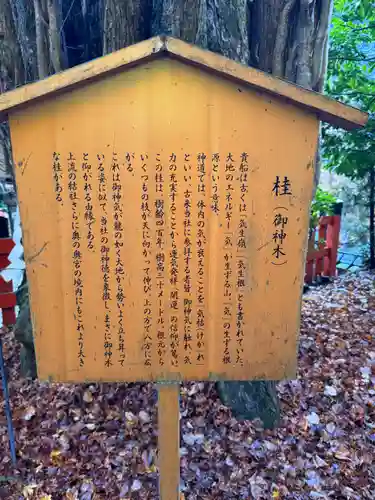 桂(御神木)
貴船は古くは「気生嶺」「気生根」とも書かれていた。
大地のエネルギー「気」が生ずる山、「気」の生ずる根
源という意味。
神道では、体内の気が衰えることを「気枯(けが)れ」
といい、古来当社に参拝する者皆、御神気に触れ、気
力の充実することから運気発祥(開運)の信仰が篤い。
この桂は、樹齢四百年、樹高三十メートル。根元から
いくつもの枝が天に向かって伸び、上の方で八方に広
がる。
これは御神気が龍の如く大地から勢いよく立ち昇って
いる姿に似て、当社の御神徳を象徴し、まさに御神木
と仰がれる由縁である。
上流の結社さらに奥の奥宮の境内にもこれより大き
な桂がある。